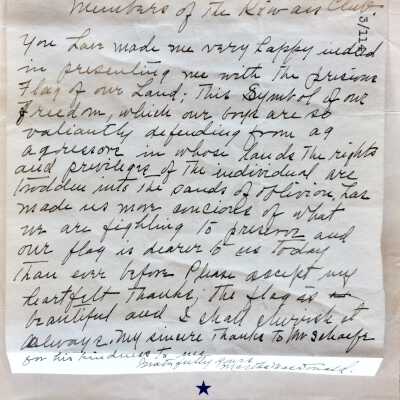 Members of The Kiwanis Club
You have made me very happy indeed
in presenting me with the precious
Flag of our Land; This Symbol of our
Freedom, which our boys are so
valiantly defending from ag
agressors in whose lands the rights
and privileges of the individual are
trodden into the sands of oblivion, has
made us more concious of what
we are fighting to preserve and
our flag is dearer to us today
than ever before Please accept my
heartfelt thanks, The flag is
beautiful and I shall cherish it
always. My sincere thanks to Mr Schaefer
for his kindness to me
Most gratefully yours
Martha MacDonald.